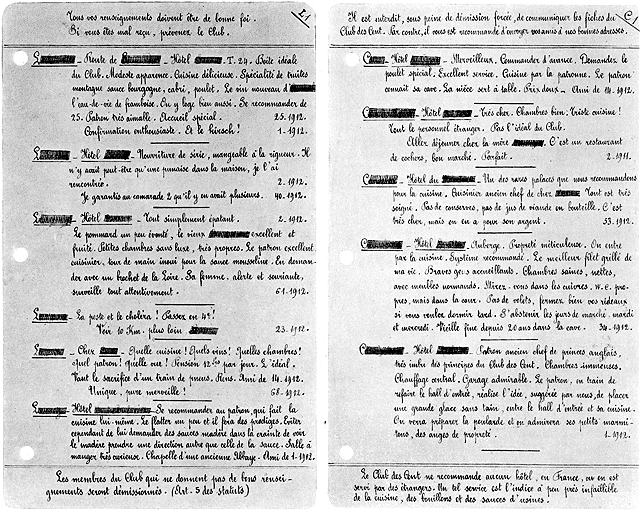 Tous vos renseignements doivent être de bonne foi.
Si vous êtes mal reçu, prévenez le Club.
L1
L — Route de — Hôtel — T. 24. Boîte idéale
du Club. Modeste apparence. Cuisine délicieuse. Spécialité de truites
montagne sauce bourgogne, cabri, poulet. Le vin nouveau d'
l'eau-de-vie de framboise. On y loge bien aussi. Se recommander de
25. Patron très aimable. Accueil spécial. 25-1912.
Confirmation enthousiaste. Et le kirsch! 1-1912.
L — Hôtel — Nourriture de série, mangeable à la rigueur. Il
n'y avait peut-être qu'une punaise dans la maison, je l'ai
rencontrée. 2-1912.
Je garantis au camarade 2 qu'il y en avait plusieurs. 40-1912.
L — Hôtel — Tout simplement épatant. 2-1912.
Le pommard un peu éventé, le vieux excellent et
fruité. Petites chambres sans luxe, très propres. Le patron excellent
cuisinier, tour de main inouï pour la sauce mousseline. En deman-
der avec un brochet de la Loire. Sa femme, alerte et souriante,
surveille tout attentivement. 61-1912.
L — La peste et le choléra! Passez en 4e!
Voir 10 Km. plus loin 23-1912.
L — Chez — Quelle cuisine! Quels vins! Quelles chambres!
Quel patron! Quelle cure! Pension 12 par jour. L'idéal.
Vaut le sacrifice d'un train de pneus. Sens. Ami de 14-1912.
Unique, pure merveille! 68-1912.
L — Hôtel — Se recommander au patron, qui fait la
cuisine lui-même. Le flatter un peu et il fera des prodiges. Eviter
cependant de lui demander des sauces madère dans la crainte de voir
le madère prendre une direction autre que celle de la sauce. Salle à
manger très curieuse. Chapelle d'une ancienne Abbaye. Ami de 1-1912.
Les membres du Club qui ne donnent pas de bons rensei-
gnements seront démissionnés. (Art. 5 des statuts)
Il est interdit, sous peine de démission forcée, de communiquer les fiches du
Club des Cent. Par contre, il vous est recommandé d'envoyer vos amis à nos bonnes adresses.
C1
C — Hôtel — Merveilleux. Commander d'avance. Demandez le
poulet spécial. Excellent service. Cuisine par la patronne. Le patron
connaît sa cave. La nièce sert à table. Prix doux — Ami de 14-1912.
C — Hôtel — Très cher. Chambres bien. Triste cuisine!
Tout le personnel étranger. Pas l'idéal du Club.
Aller déjeuner chez la mère C'est un restaurant
de cochers, bon marché. Parfait. 2-1911.
C — Hôtel du — Un des rares palaces que nous recommandons
pour la cuisine. Cuisinier ancien chef de chez Tout est très
soigné. Pas de conserves, pas de jus de viande en bouteille. C'est
très cher, mais on en a pour son argent. 53-1912.
C — Hôtel — Auberge. Propreté méticuleuse. On entre
par la cuisine. Système recommandé. Le meilleur filet grillé de
ma vie. Braves gens accueillants. Chambres saines, nettes,
avec meubles normands. Mirez-vous dans les cuivres. W.C. pro-
pres, mais dans la cour. Pas de volets, fermez bien vos rideaux
si vous voulez dormir tard. S'abstenir les jours de marché, mardi
et mercredi. Vieille fine depuis 20 ans dans la cave. 34-1912.
C — Hôtel — Patron ancien chef de princes anglais,
très imbu des principes du Club des Cent. Chambres immenses.
Chauffage central. Garage admirable. Le patron, en train de
refaire le hall d'entrée, réalise l'idée, suggérée par nous, de placer
une grande glace sans tain, entre le hall d'entrée et sa cuisine.
On verra préparer la poularde et on admirera ses petits marmi-
tons, des anges de propreté. 1-1912.
Le Club des Cent ne recommande aucun hôtel, en France, où on est
servi par des étrangers. Un tel service est l'indice à peu près infaillible
de la cuisine, des bouillons et des sauces d'usines!